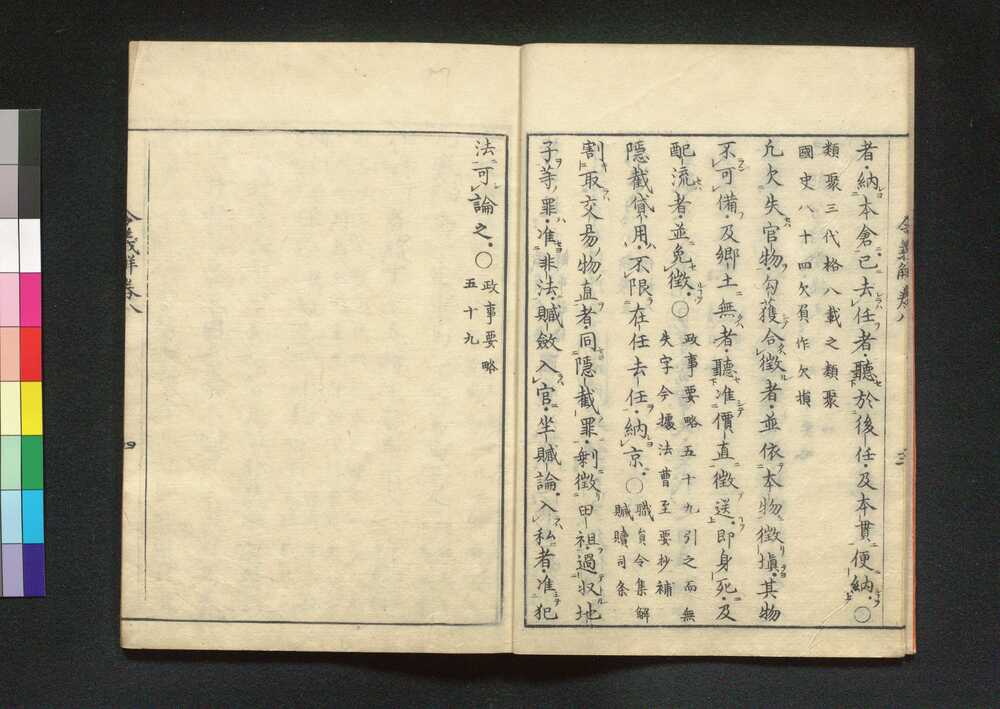 者納本倉已去任者聽於後任及本貫便納○
類聚三代格八載之類聚
國史八十四欠負作欠損
凢欠失官物勾獲合徵者並依本物徵塡其物
不可備及鄉土無者聽准價直徵送即身死及
配流者並免徵○
政事要略五十九引之而無
失字今據法曹至要抄補
隱截貸用不限在任去任納京○
職員令集解
贓贖司条
割取交易物直者同隱截罪剰徵田租過収地
子等罪准非法贓斂入官坐贓論入私者准犯
法可論之○
政事要略
五十九
令義解卷八
三
令義解卷八
四